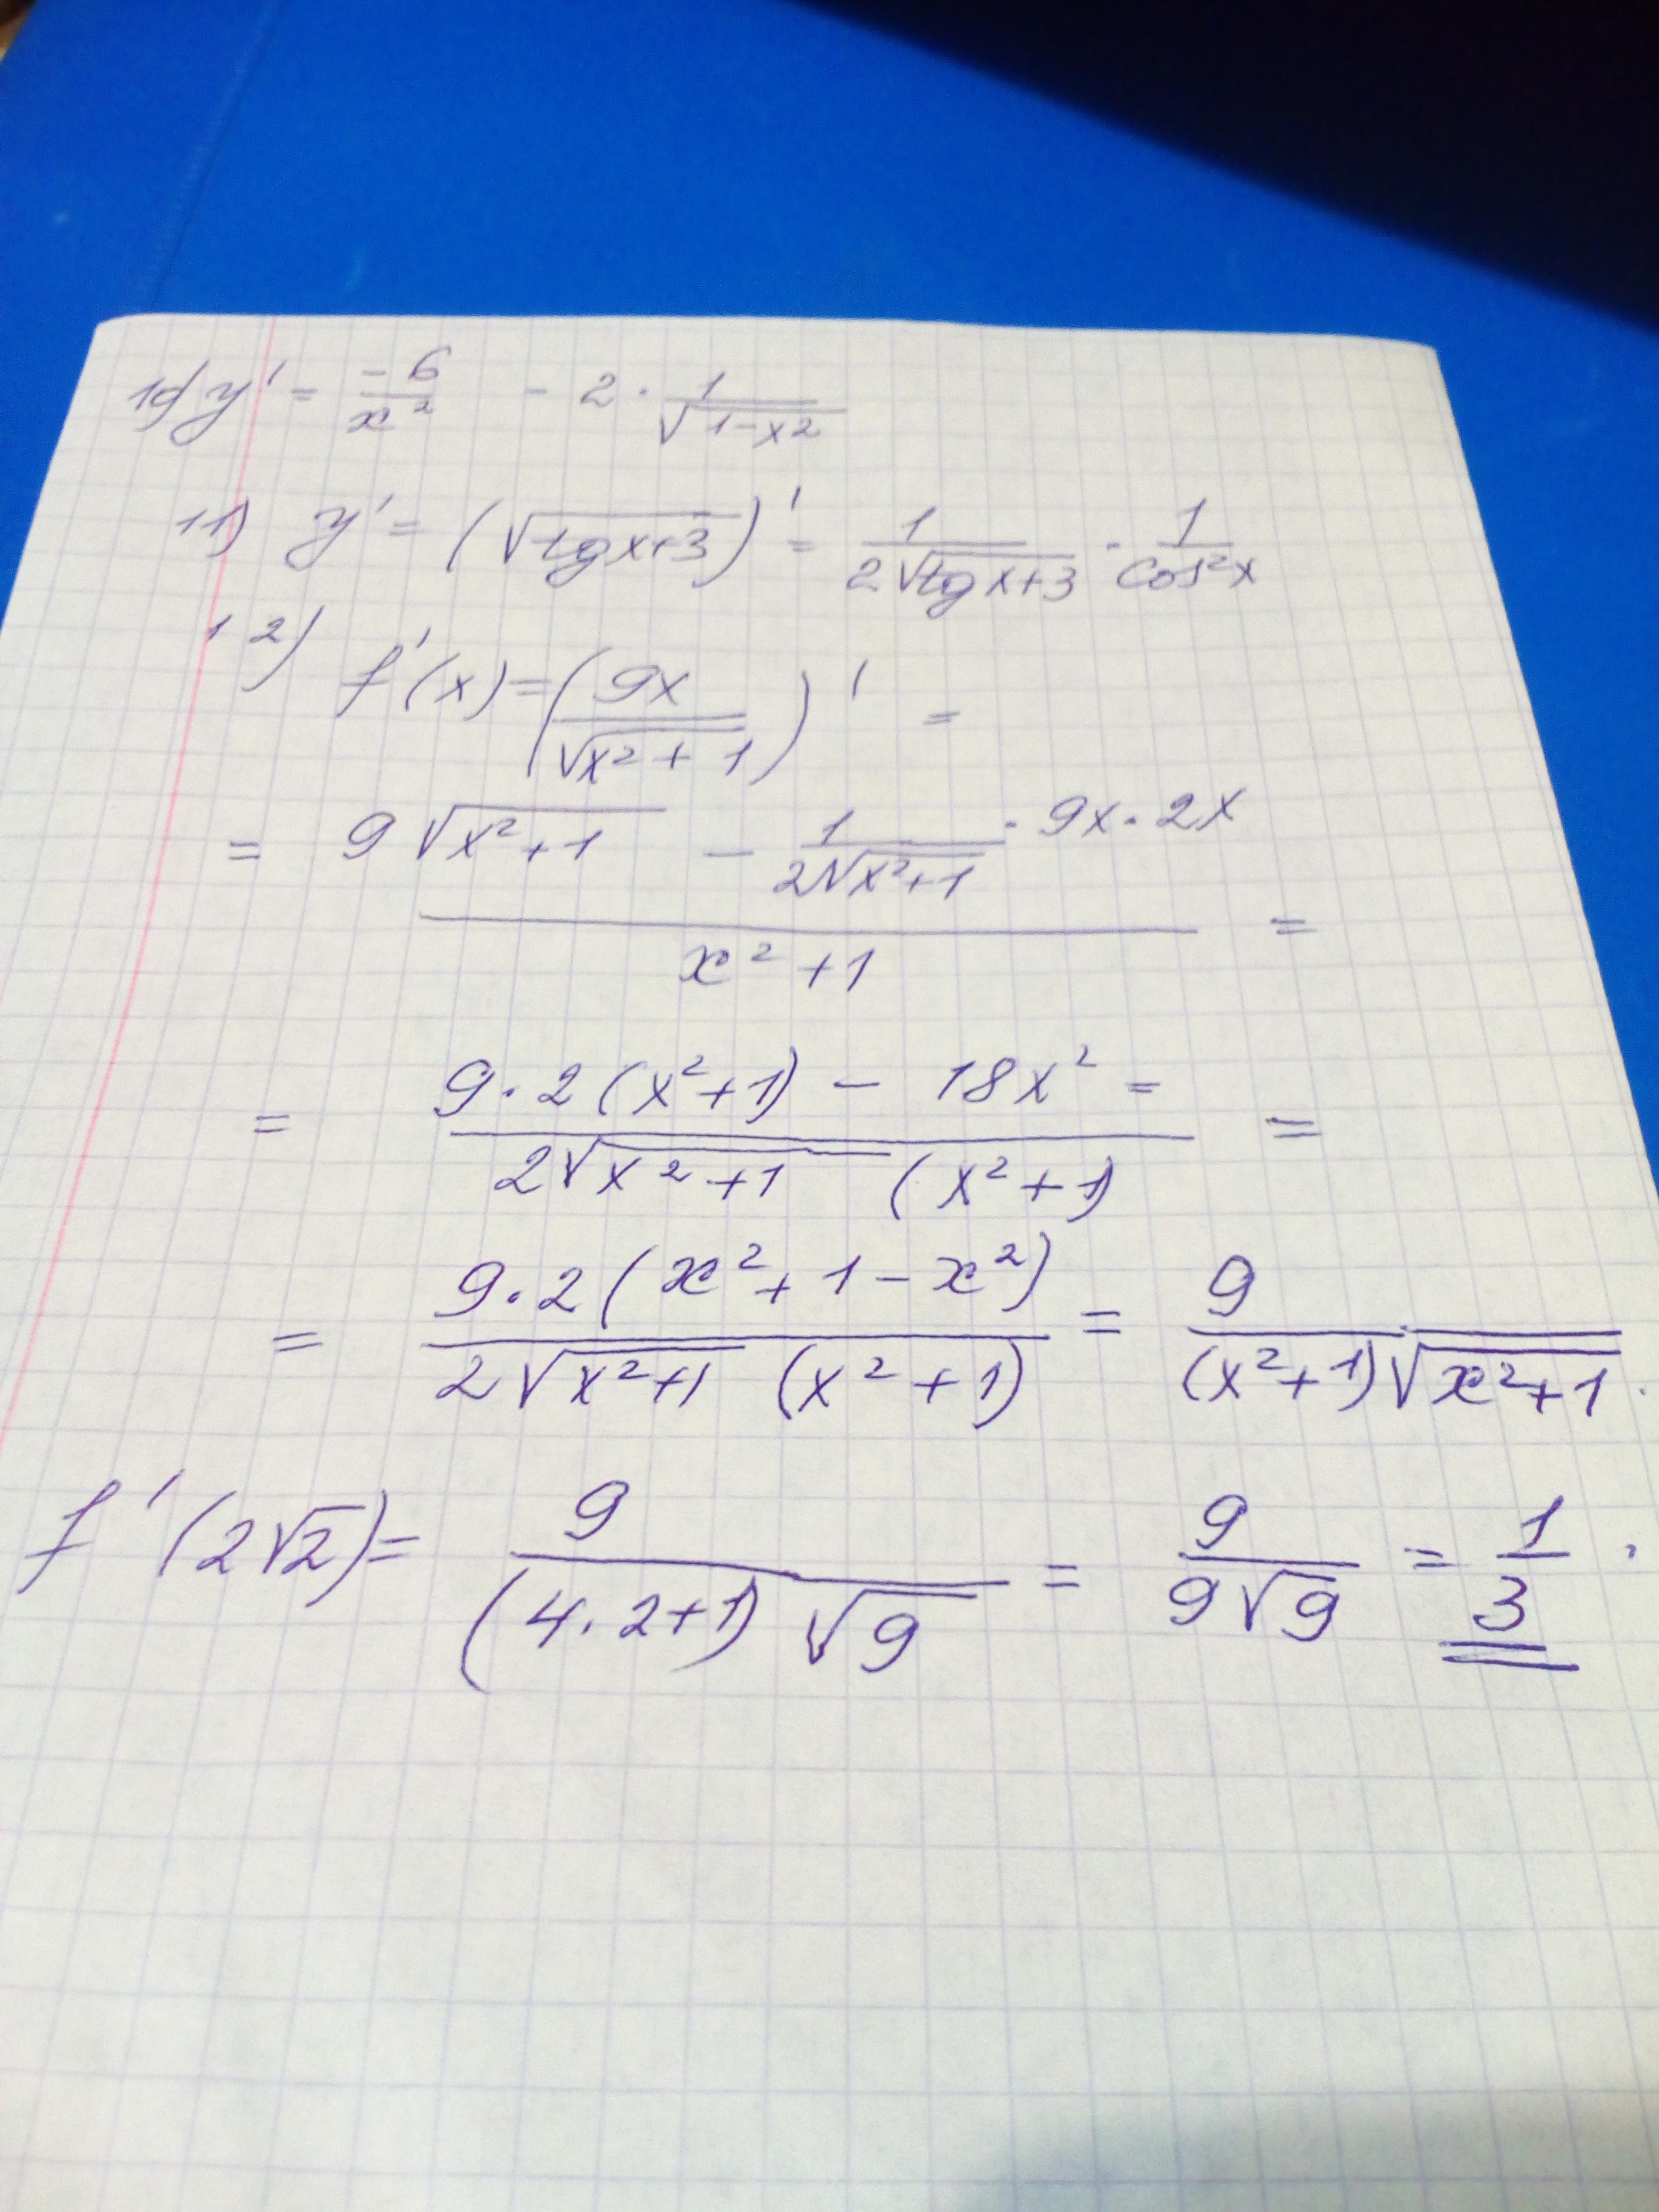 10) y' = -6/x² - 2 · 1/√(1-x²)
11) y' = (√(tgx+3))' = 1/(2√(tgx+3)) · 1/cos²x
12) f'(x) = (9x/√(x²+1))' =
= (9√(x²+1) - 1/(2√(x²+1)) · 9x · 2x)/(x²+1) =
= (9·2(x²+1) - 18x² =)/(2√(x²+1) (x²+1)) =
= (9·2(x²+1-x²))/(2√(x²+1) (x²+1)) = 9/((x²+1)√(x²+1)).
f'(2√2) = 9/((4·2+1)√9) = 9/(9√9) = 1/3.